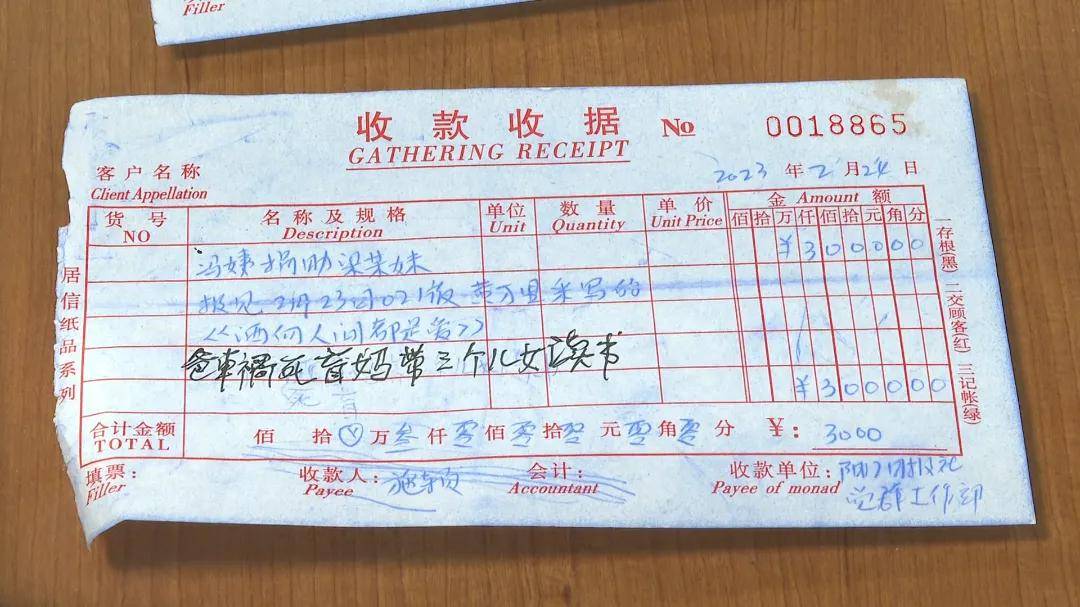 Filler
收款收据 No 0018865
GATHERING RECEIPT
客户名称
Client Appellation
2023 年 2 月 24 日
货号 名称及规格 单位 数量 单价 金 Amount 额
NO Description Unit Quantity Unit Price 佰 拾 万 仟 佰 拾 元 角 分
冯姨捐助梁菜妹 ¥ 3 0 0 0 0 0
报见 2月23日021版 黄万里采写的
《洒向人间都是爱》
爸车祸死盲妈带三个儿女读书
死盲
¥ 3 0 0 0 0 0
合计金额 佰 拾 万 叁 仟 零 佰 零 拾 零 元 零 角 零 分 ¥: 3000
TOTAL
填票: 收款人: 会计: 收款单位: 阳江日报社
Filler Payee Accountant Payee of monad 党群工作部
居信纸品系列
一存根(黑) 二交顾客(红) 三记帐(绿)